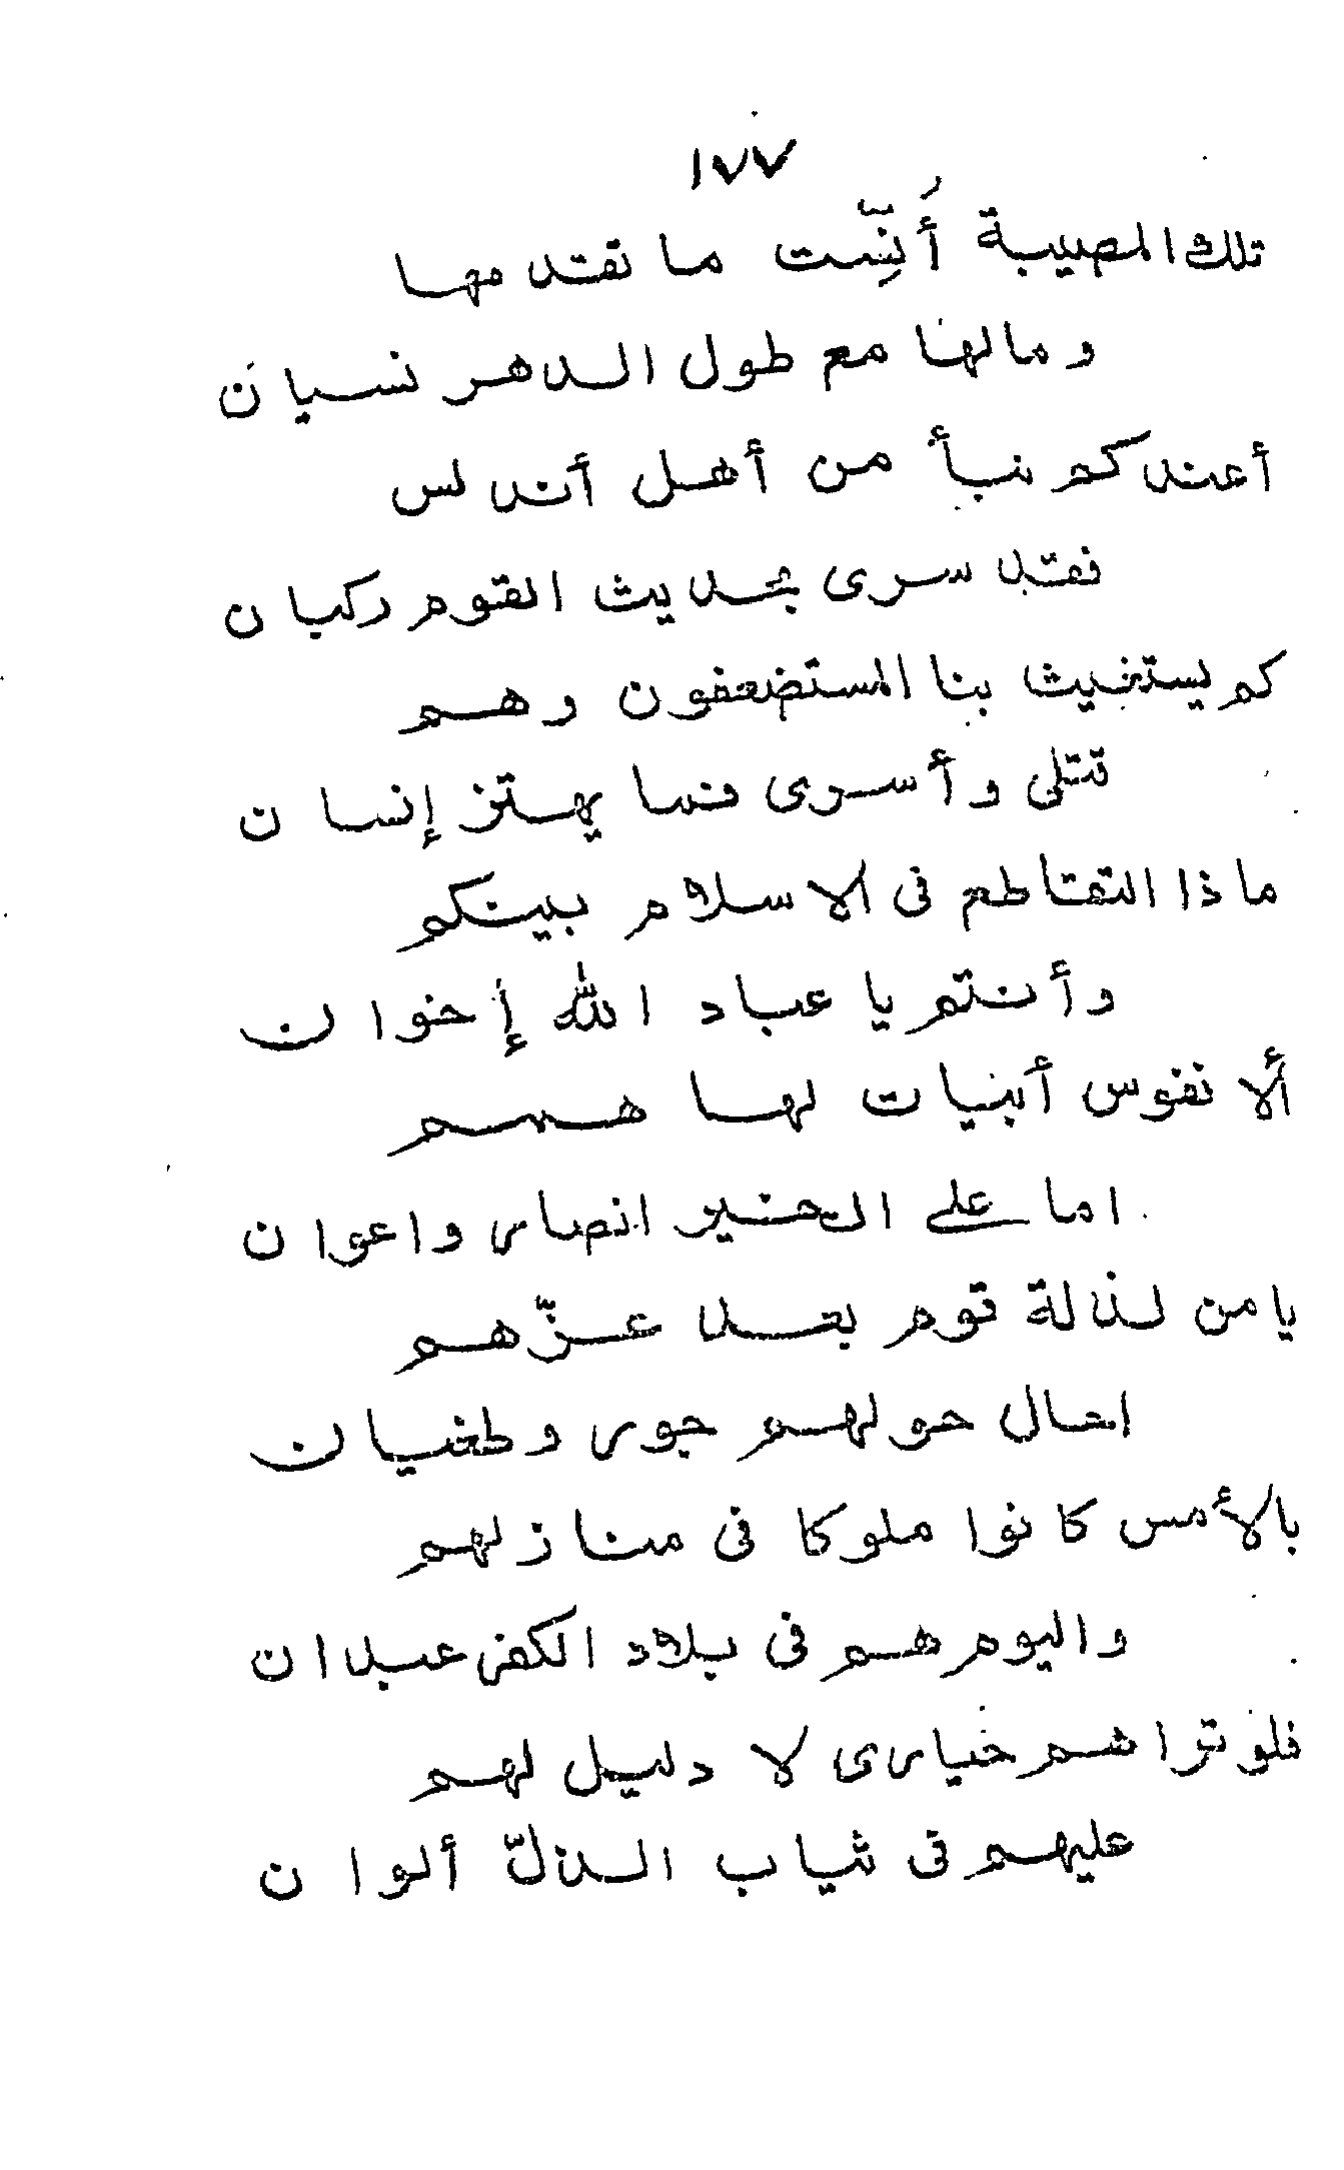 ١٧٧
تلك المصيبة أُنسِّت ما تقدمها
ومالها مع طول الدهر نسيان
أعندكم نبأ من أهل أندلس
فقد سرى بحديث القوم ركبان
كم يستغيث بنا المستضعفون وهم
قتلى وأسرى فما يهتز إنسان
ماذا التقاطع فى الاسلام بينكم
وأنتم يا عباد الله إخوان
ألا نفوس أبيات لها همم
اما على الخير انصار واعوان
يا من لذلة قوم بعد عزّهم
احال حولهم جور وطغيان
بالأمس كانوا ملوكا فى منازلهم
واليوم هم فى بلاد الكفر عبدان
فلو تراهم حيارى لا دليل لهم
عليهم فى ثياب الذلّ ألوان